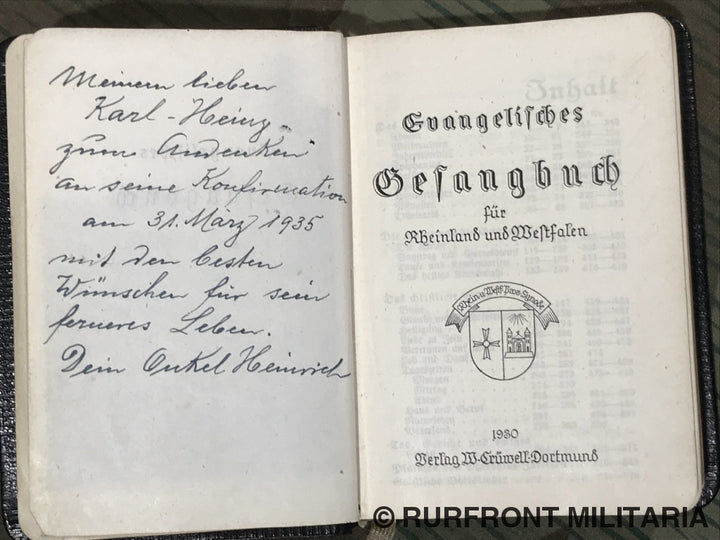 Meinem lieben
Karl-Heinz
zum Andenken
an seine Konfirmation
am 31. März 1935
mit den besten
Wünschen für sein
ferneres Leben.
Dein Onkel Heinrich
Inhalt
Evangelisches
Gesangbuch
für
Rheinland und Westfalen
Rhein. u. Westf. Prov. Synode
1930
Verlag W. Crüwell·Dortmund
© RURFRONT MILITARIA